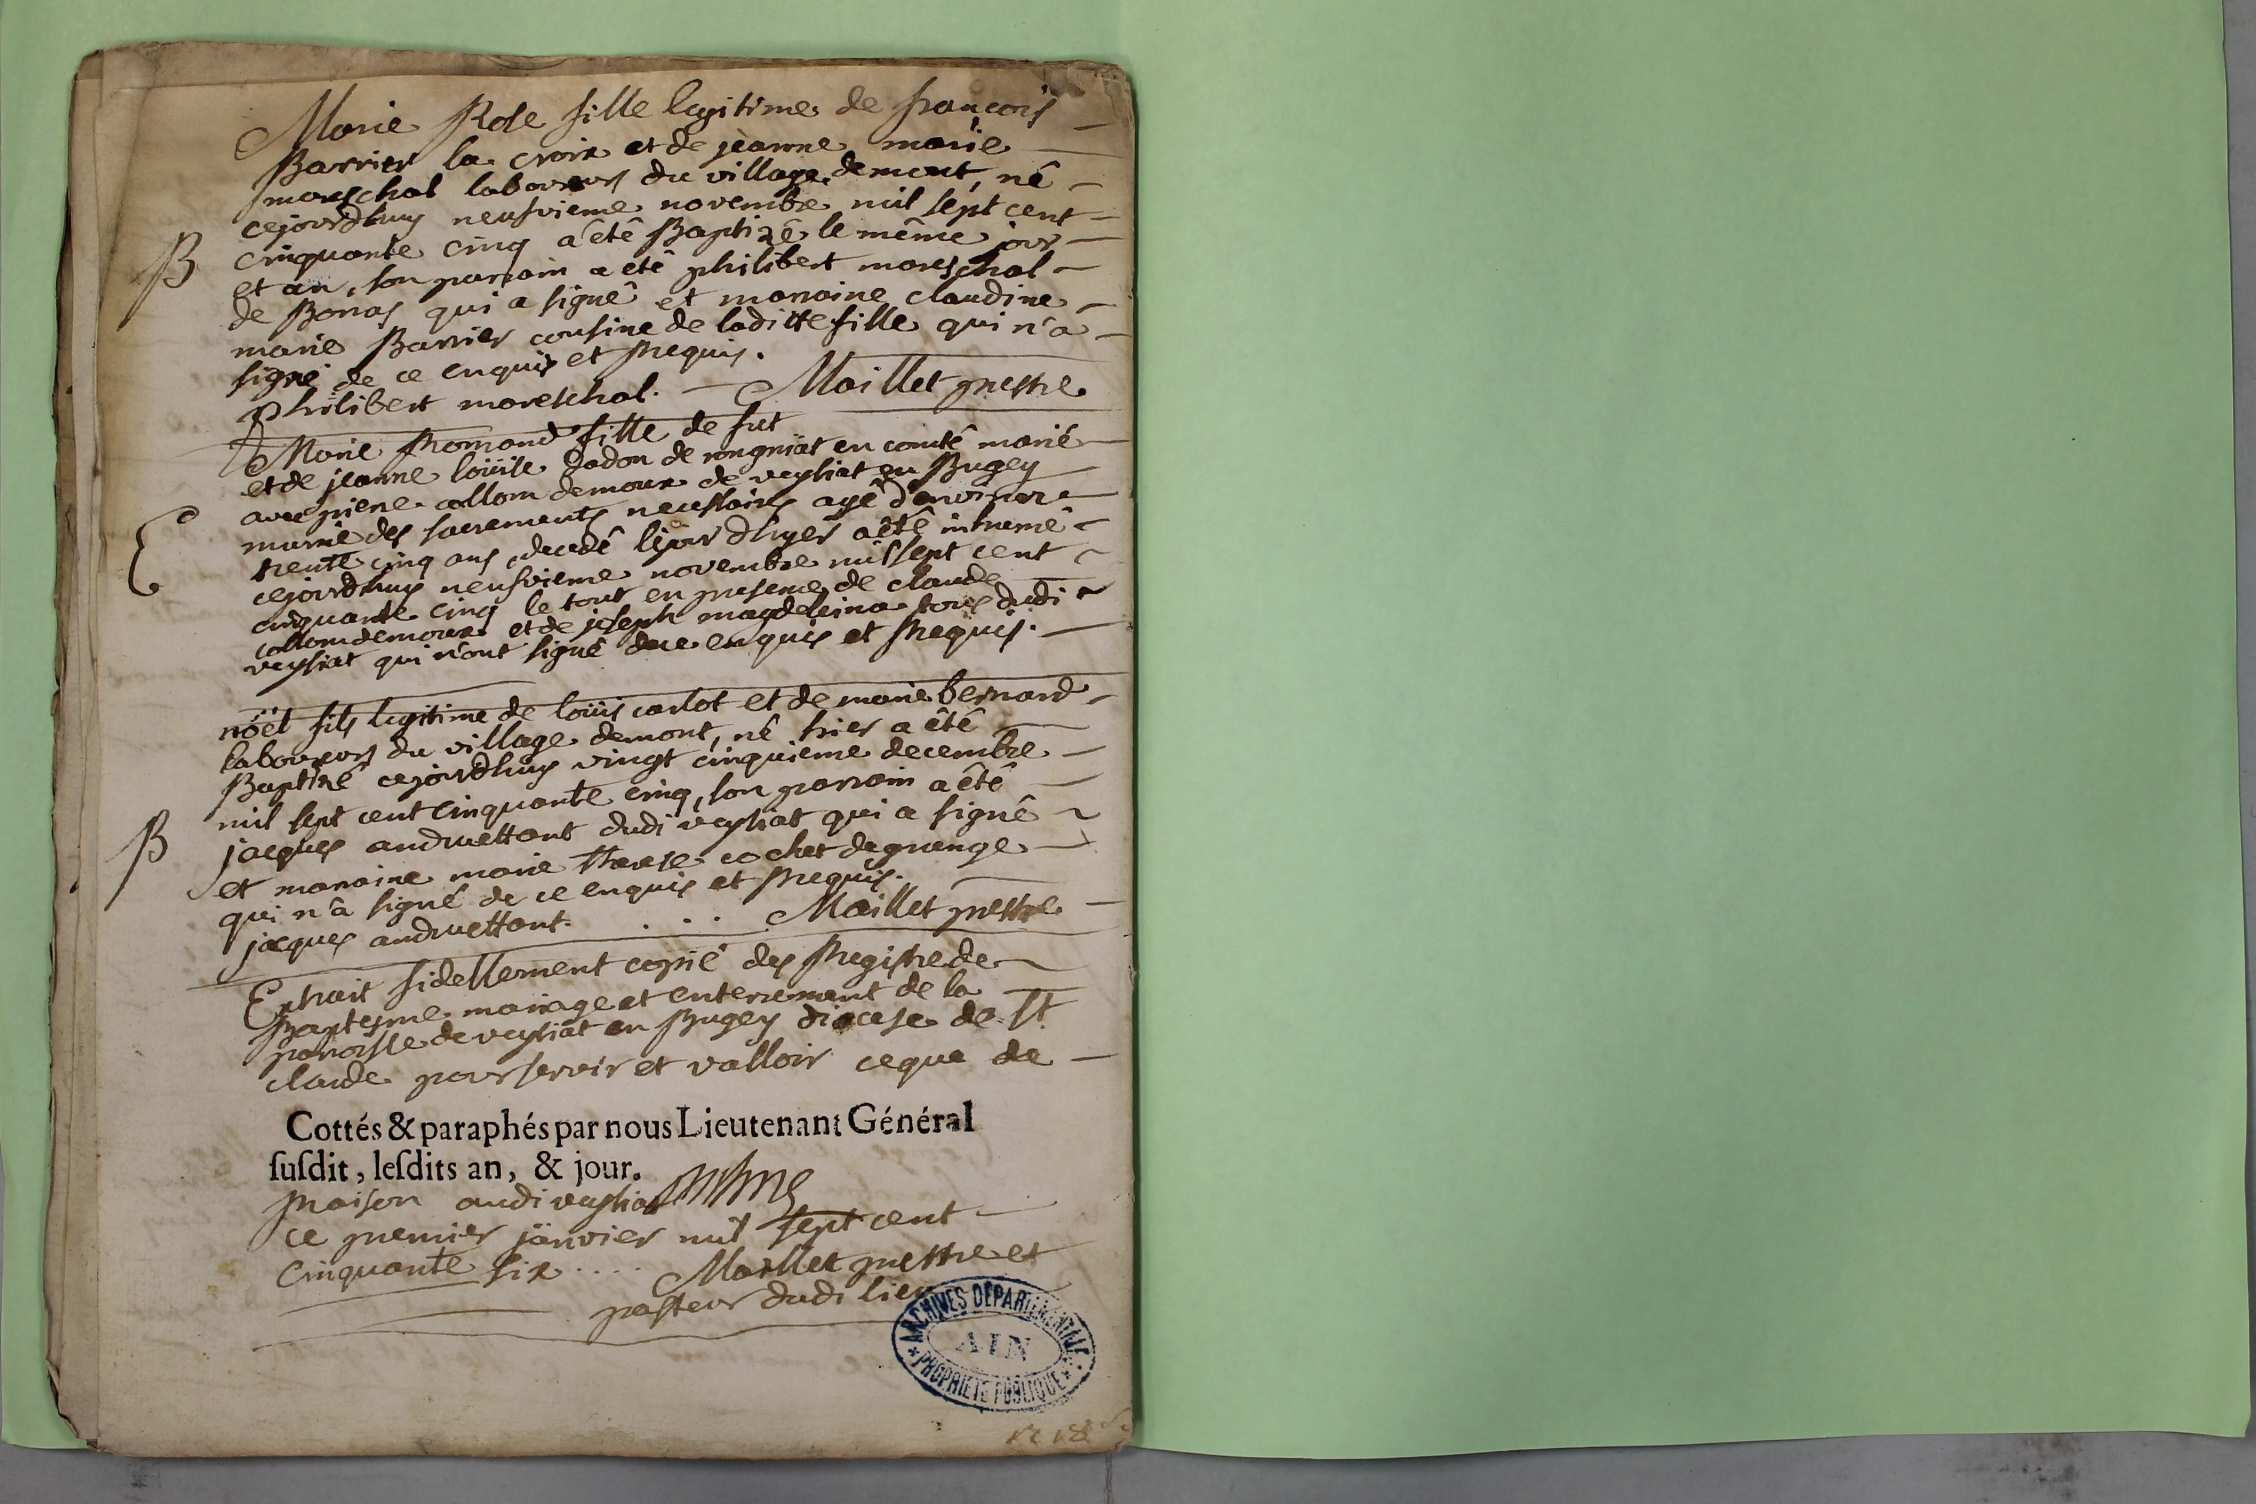 Marie Rose fille legitime de francois
Barrier la croix et de jeanne marie
mareschal laboureurs du village demont, né
cejourdhuy neufvieme novembre mil sept cent
B
cinquante cinq a êtê Baptizê le même jour
et an, son parrain a êtê philibert mareschal
de Bonas qui a signê et marraine claudine
marie Barrier cousine de laditte fille qui n'a
signé de ce enquis et Requis.
philibert mareschal. Maillet prestre
Marie Romand fille de fut
et de jeanne loüise Godon de rongniat en comtê marié
avec pierre collomdemoux de veysiat en Bugey
munie des sacrements necessaires agé d'environ
E
trente cinq ans, decedê lejour d'hyer a êtê inhumé
cejourdhuy neufvieme novembre mil sept cent
cinquante cinq le tout en presence de claude
collomdemoux et de joseph magdeleina tous dudi
veysiat qui n'ont signê dece enquis et Requis.
nöel fils legitime de loüis carlot et de marie bernard
laboureurs du village demont, nê hier a êtê
Baptizé cejourdhuy vingt cinquieme decembre
mil sept cent cinquante cinq, son parrain a êtê
B
jacques andruettant dudi veysiat qui a signê
et marraine marie therese cochet degrange
qui n'a signé de ce enquis et Requis.
jacques andruettant. ... Maillet prestre
Extrait fidellement copié des Registre de
Baptesme mariage et enterrement de la
paroisse de veysiat en Bugey diocese de St
claude pour servir et valloir ceque de
Cottés & paraphés par nous Lieutenant Général
susdit, lesdits an, & jour.
Raison audi veysiat
ce premier janvier mil sept cent
Cinquante six .... Maillet prestre et
pasteur dudi lieu
ARCHIVES DÉPARTEMENTALES
AIN
PROPRIÉTÉ PUBLIQUE